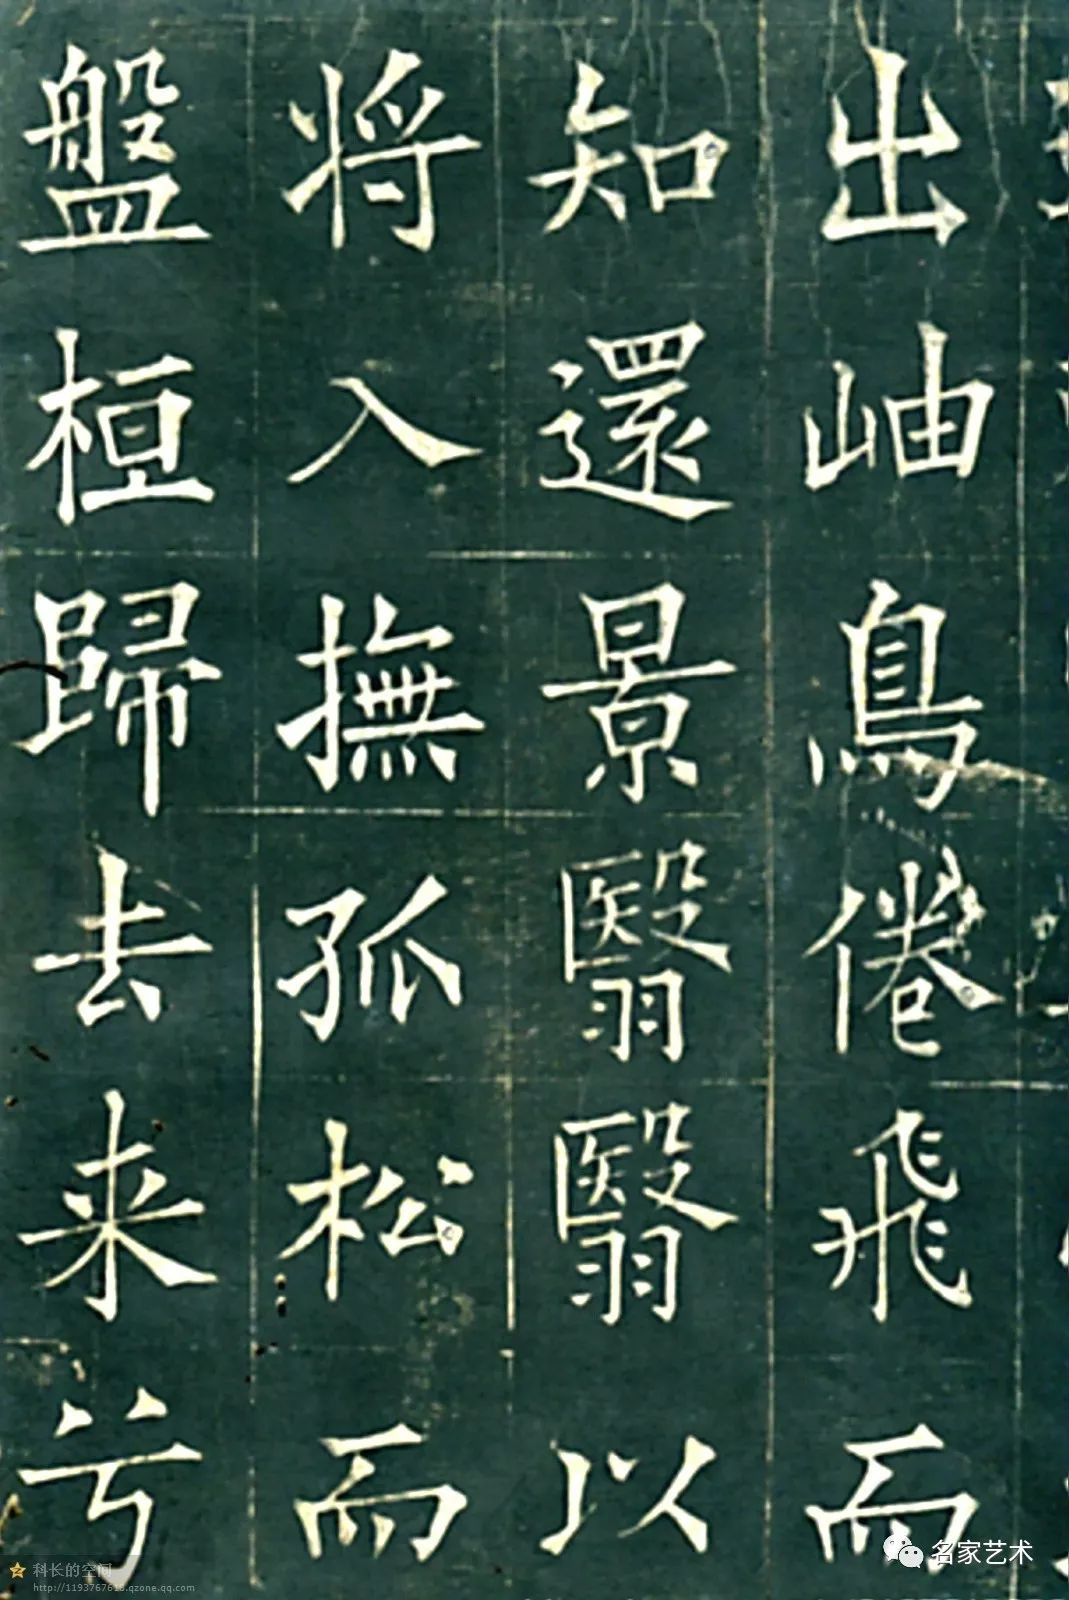 出岫鳥倦飛而
知還景翳翳以
将入撫孤松而
盤桓歸去来兮
科长的空间
http://1193767618.qzone.qq.com
名家艺术